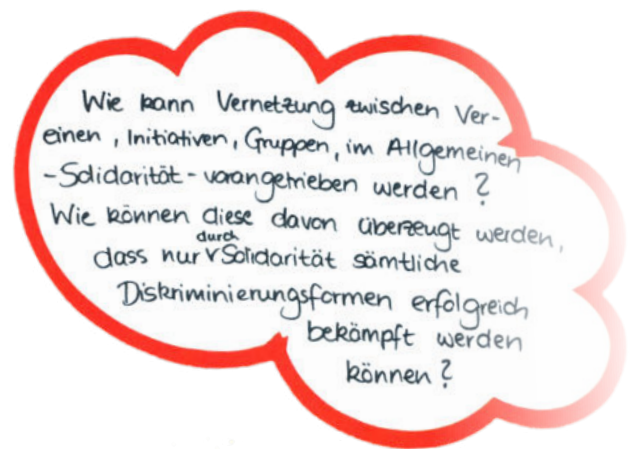 Wie kann Vernetzung zwischen Ver-
einen, Initiativen, Gruppen, im Allgemeinen
-Solidarität- vorangetrieben werden?
Wie können diese davon überzeugt werden,
dass nur durch Solidarität sämtliche
Diskriminierungsformen erfolgreich
bekämpft werden
können?